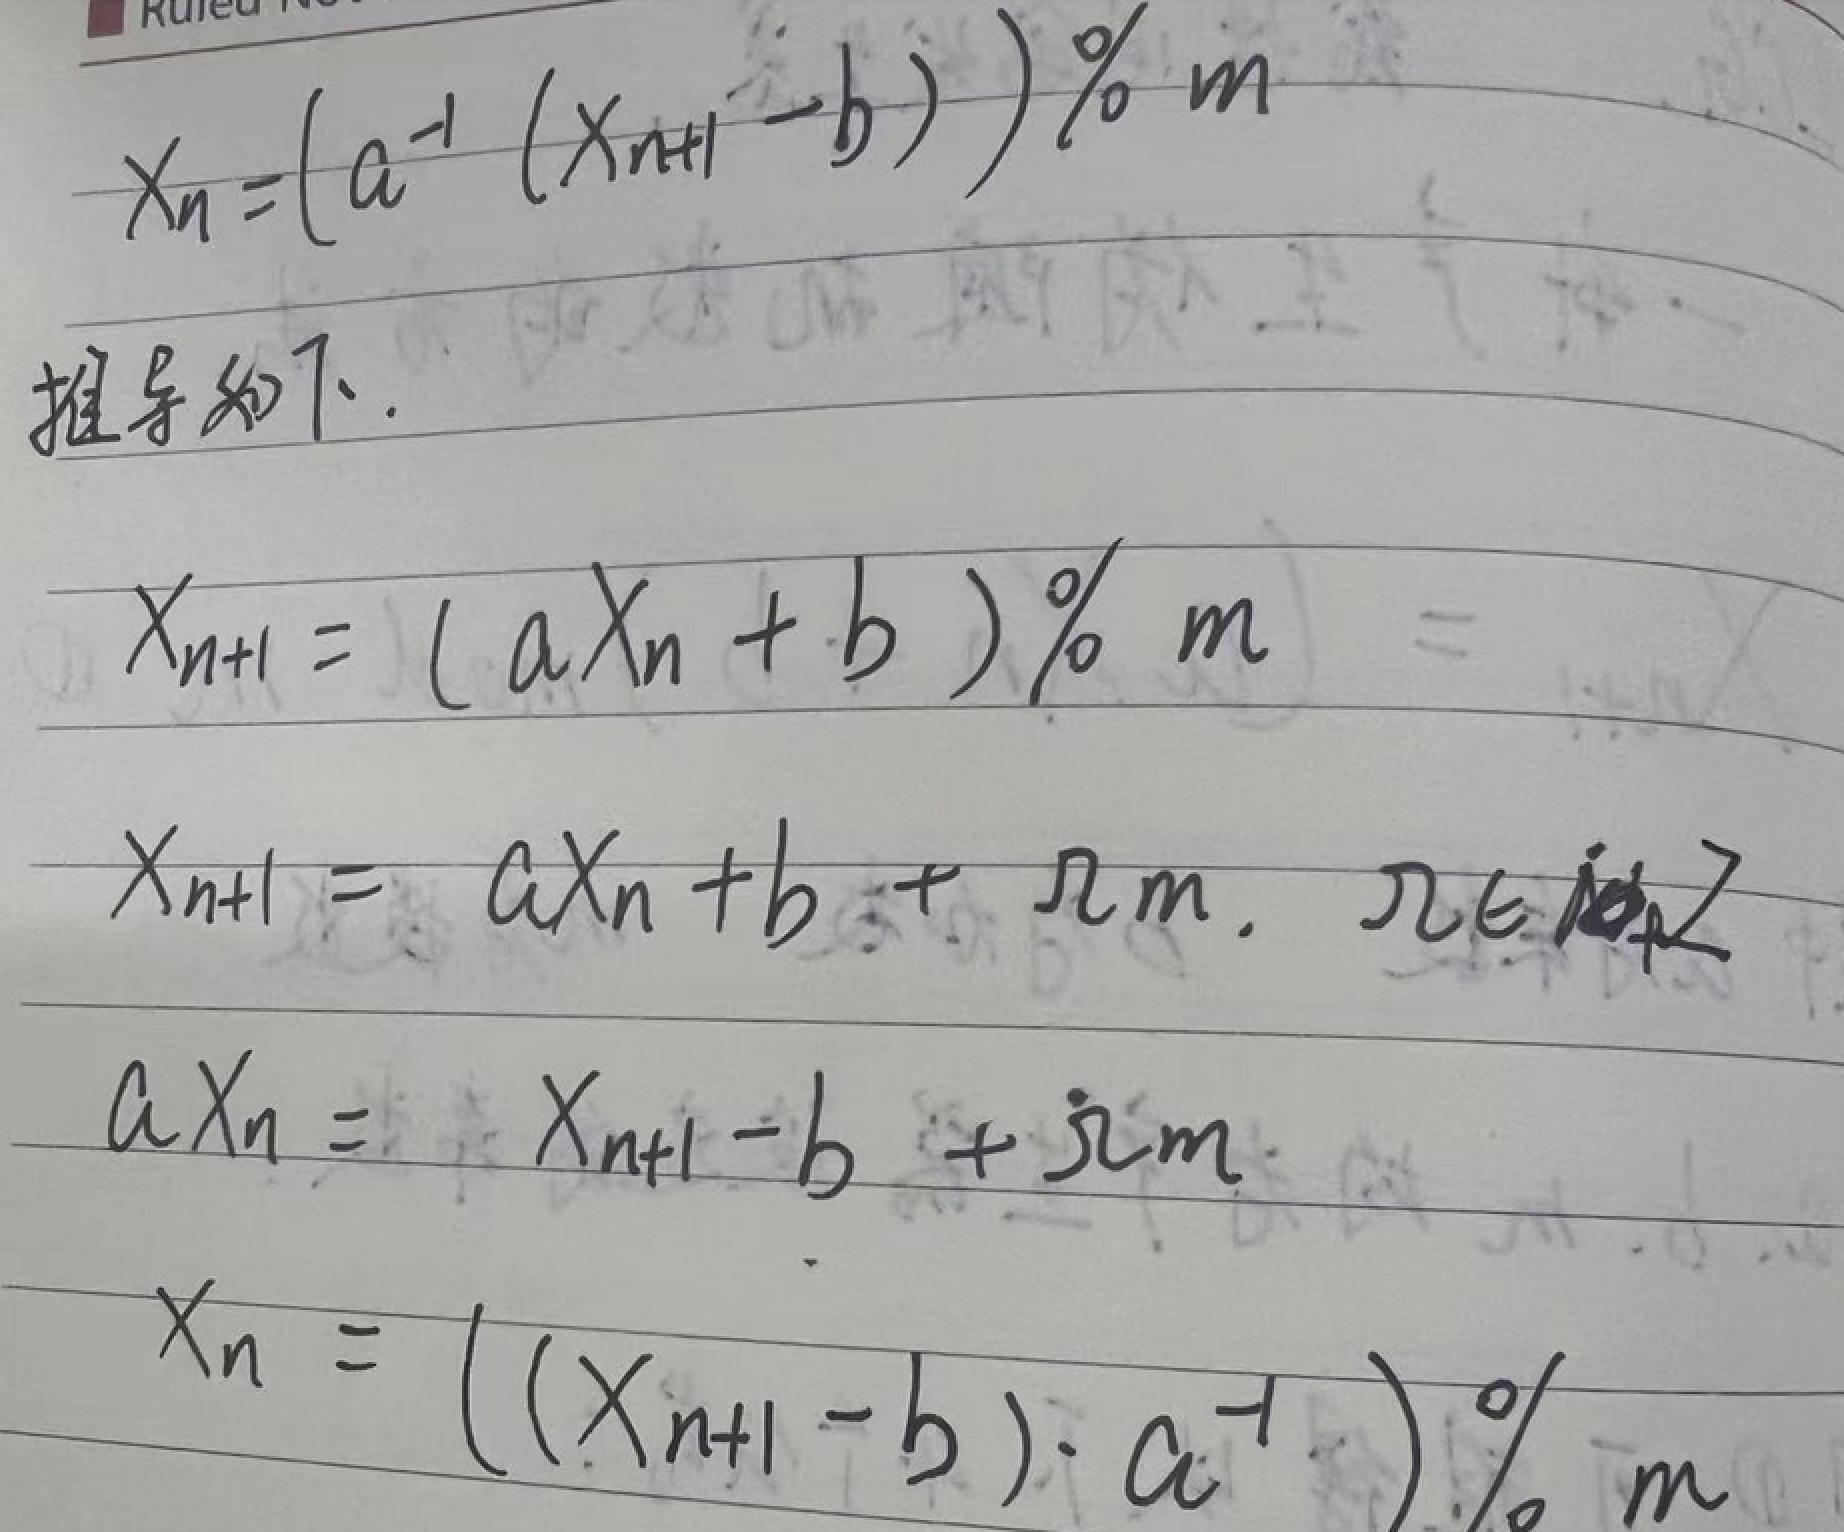 Ruled
Xn = (a⁻¹ (Xn+1 - b)) % m
推导如下.
Xn+1 = (aXn + b) % m
Xn+1 = aXn + b + Ωm. Ω ∈ Z
aXn = Xn+1 - b + Ωm
Xn = ((Xn+1 - b) · a⁻¹) % m